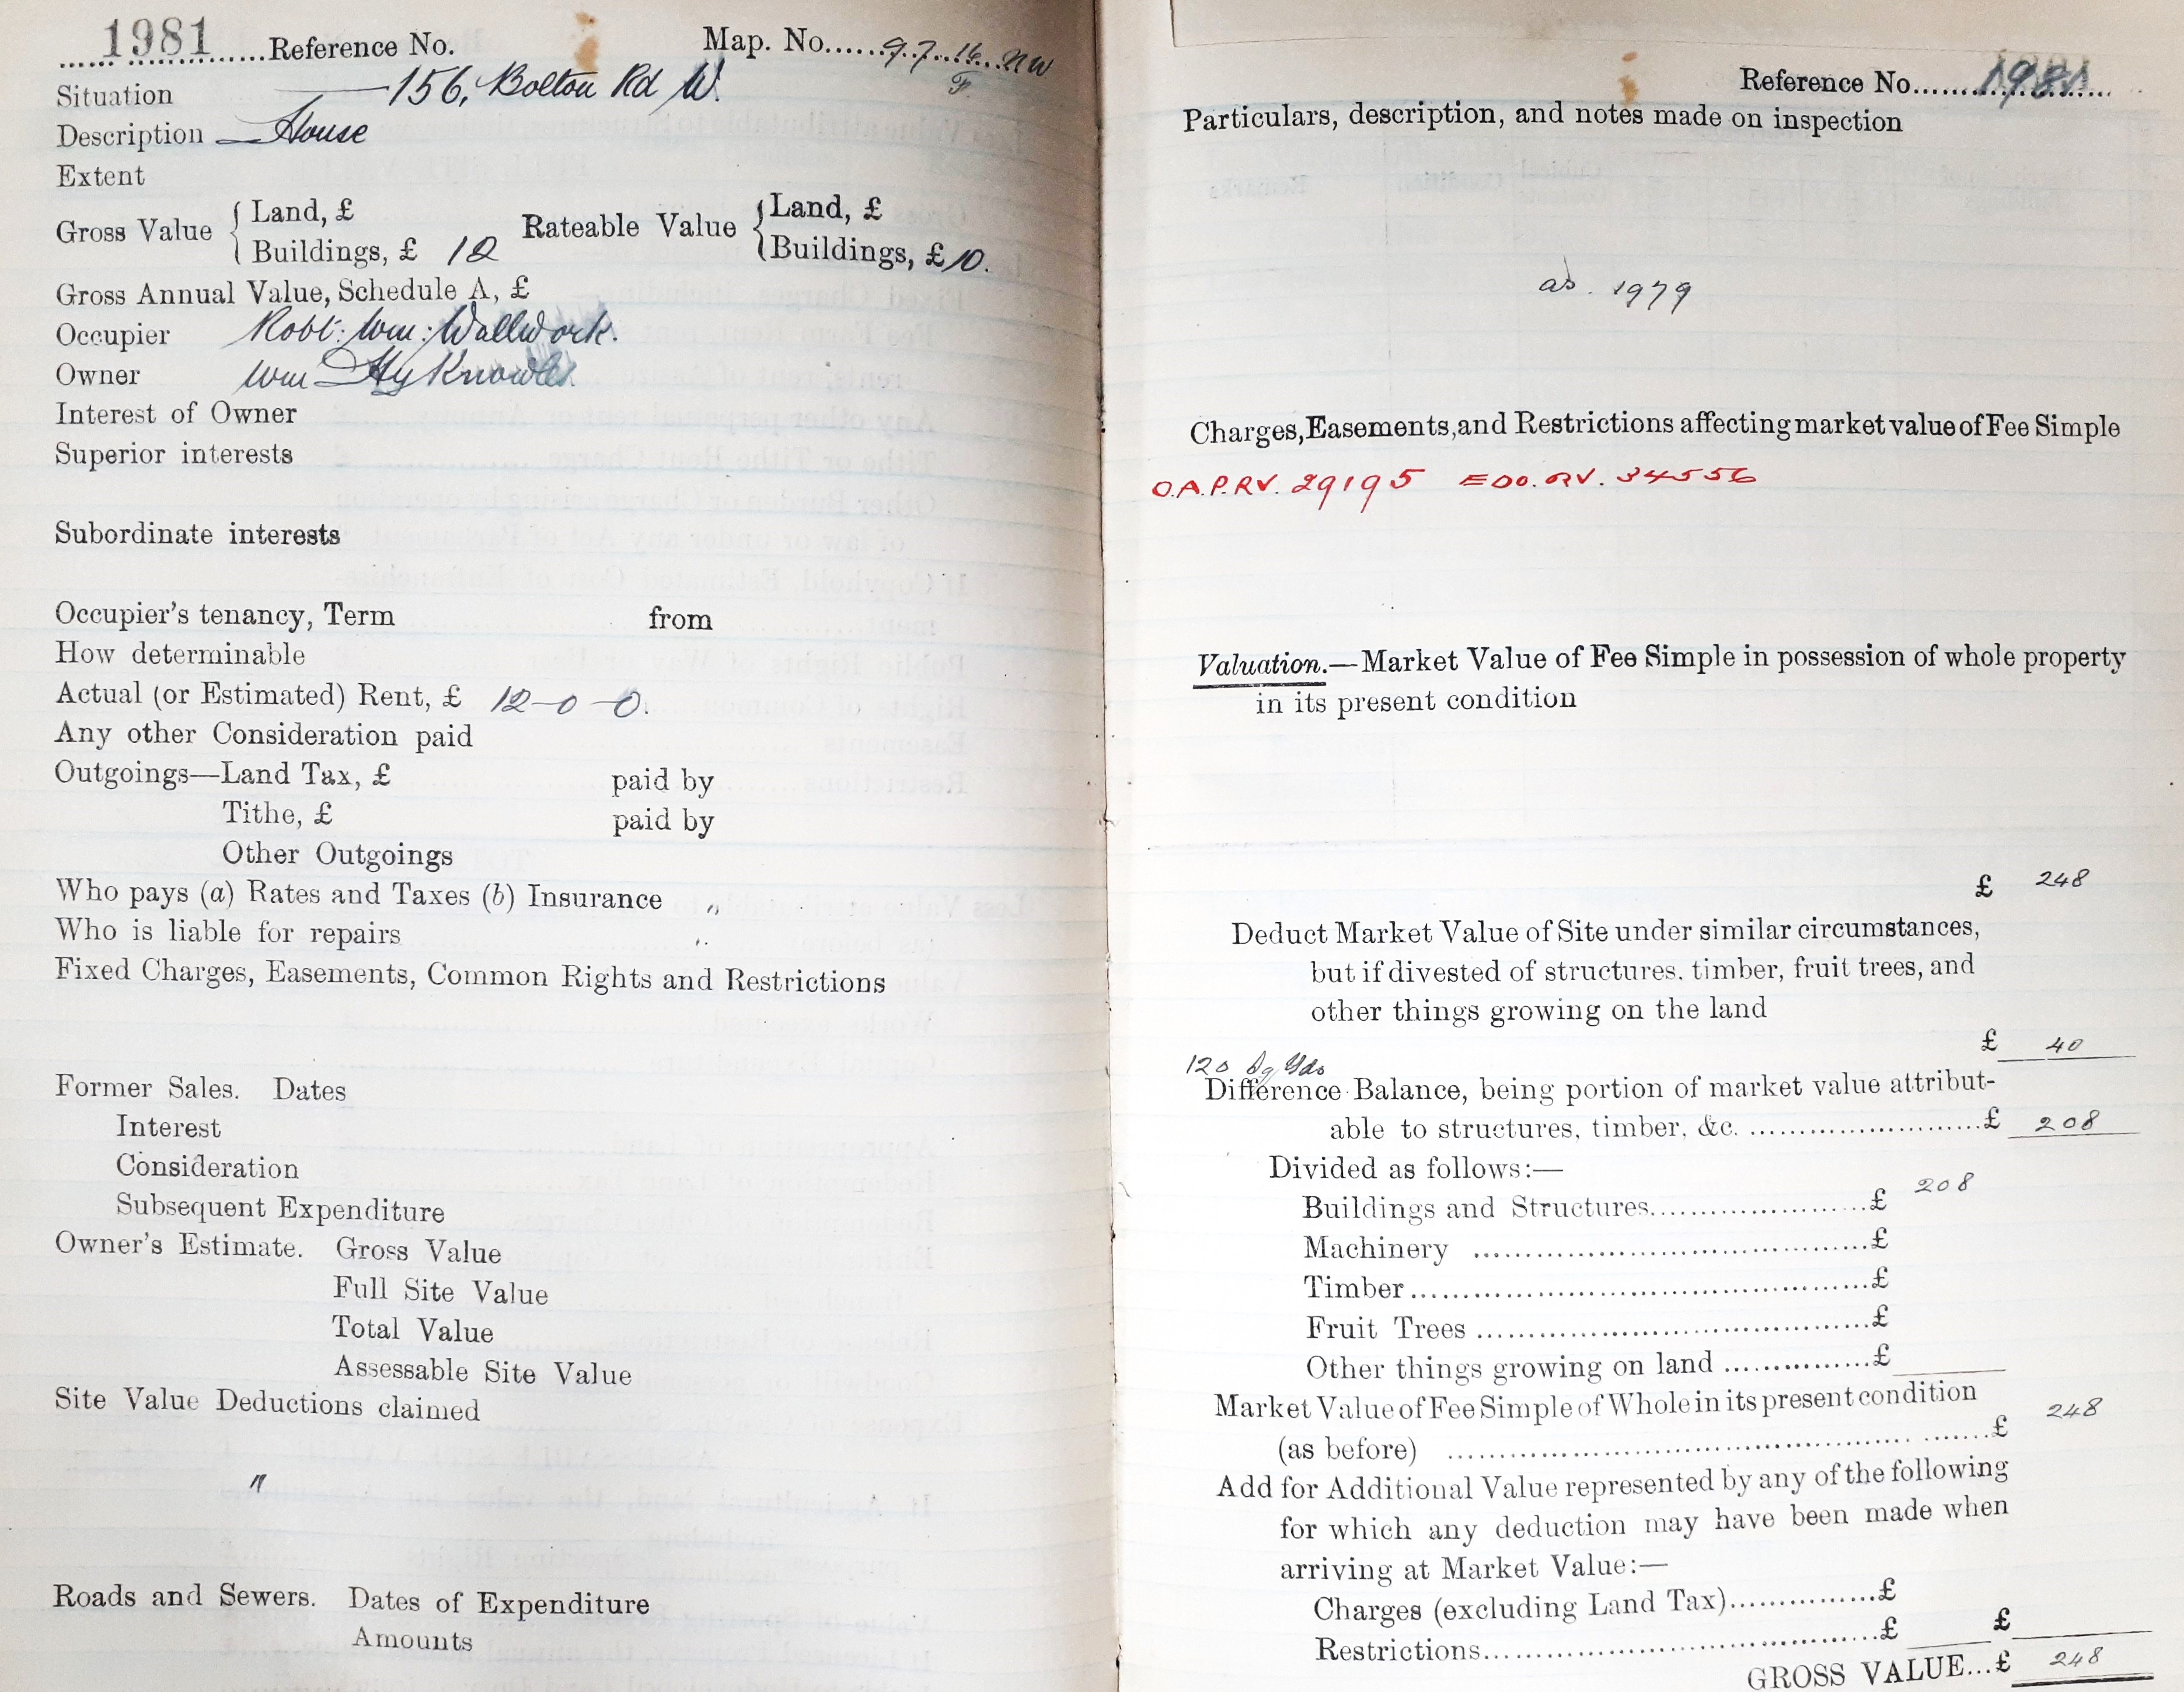 1981 Reference No. Map. No. 97.16. NW
F.
Situation 156, Bolton Rd W.
Description House
Extent
Gross Value { Land, £ Rateable Value { Land, £
Buildings, £ 12 Buildings, £ 10.
Gross Annual Value, Schedule A, £
Occupier Robt: Wm: Wallwork.
Owner Wm Hy Knowles
Interest of Owner
Superior interests
Subordinate interests
Occupier's tenancy, Term from
How determinable
Actual (or Estimated) Rent, £ 12-0-0.
Any other Consideration paid
Outgoings—Land Tax, £ paid by
Tithe, £ paid by
Other Outgoings
Who pays (a) Rates and Taxes (b) Insurance "
Who is liable for repairs "
Fixed Charges, Easements, Common Rights and Restrictions
Former Sales. Dates
Interest
Consideration
Subsequent Expenditure
Owner's Estimate. Gross Value
Full Site Value
Total Value
Assessable Site Value
Site Value Deductions claimed
"
Roads and Sewers. Dates of Expenditure
Amounts
Reference No. 1981
Particulars, description, and notes made on inspection
as. 1979
Charges, Easements, and Restrictions affecting market value of Fee Simple
O.A.P.RV. 29195 EDO. RV. 34556
Valuation.—Market Value of Fee Simple in possession of whole property
in its present condition
£ 248
Deduct Market Value of Site under similar circumstances,
but if divested of structures. timber, fruit trees, and
other things growing on the land
£ 40
120 Sq Yds
Difference Balance, being portion of market value attribut-
able to structures, timber, &c. £ 208
Divided as follows:—
Buildings and Structures £ 208
Machinery £
Timber £
Fruit Trees £
Other things growing on land £
Market Value of Fee Simple of Whole in its present condition
(as before) £ 248
Add for Additional Value represented by any of the following
for which any deduction may have been made when
arriving at Market Value:—
Charges (excluding Land Tax) £
Restrictions £ £
GROSS VALUE... £ 248